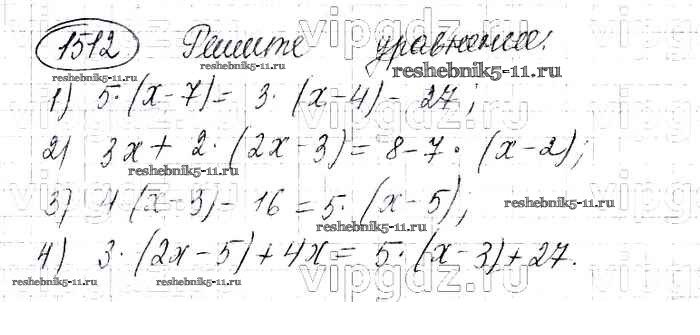 1512 Решите уравнение.
1) 5·(x-7)= 3·(x-4)-27;
2) 3x+2·(2x-3)=8-7·(x-2);
3) 4(x-3)-16=5·(x-5);
4) 3·(2x-5)+4x= 5·(x-3)+27.
vipgdz.ru
reshebnik5-11.ru
reshebnik5-11.ru
reshebnik5-11.ru
reshebnik5-11.ru
reshebnik5-11.ru
reshebnik5-11.ru
reshebnik5-11.ru
reshebnik5-11.ru
vipgdz.ru
vipgdz.ru